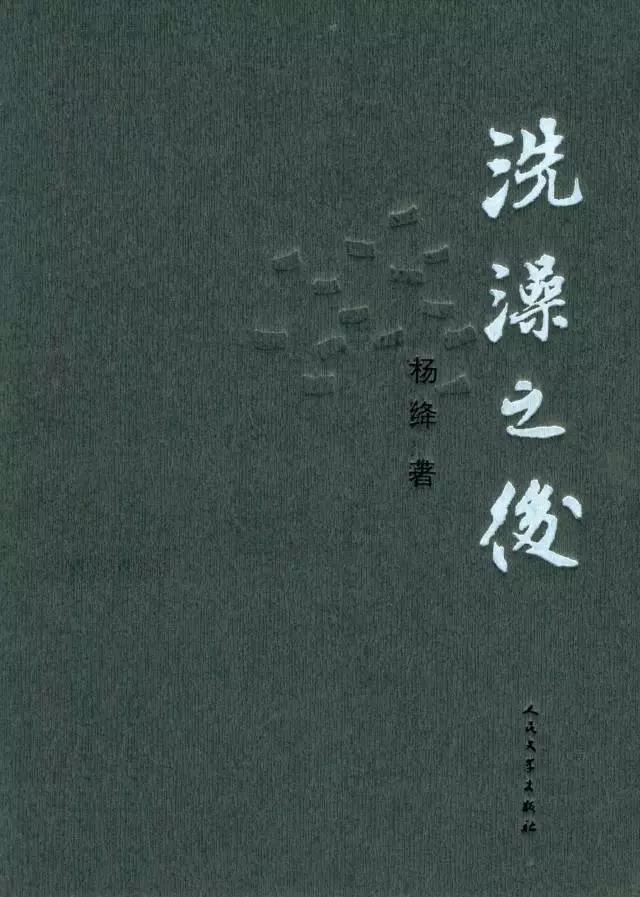 洗澡之後
杨绛 著
人民文学出版社